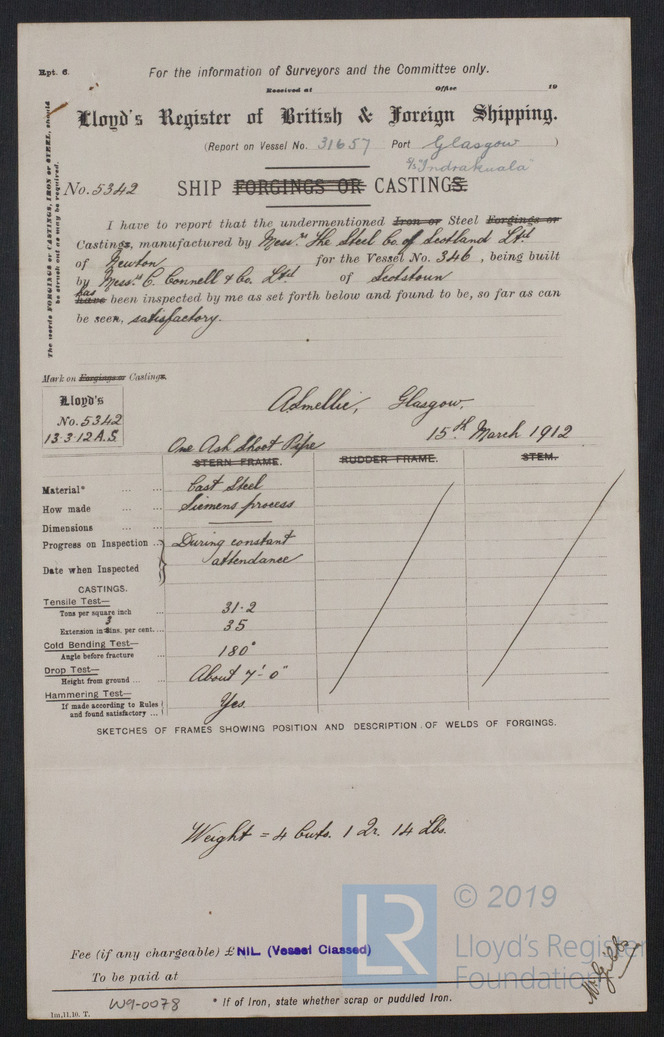 Rpt. 6.
For the information of Surveyors and the Committee only.
Received at Office 19
Lloyd's Register of British & Foreign Shipping.
(Report on Vessel No. 31657 Port Glasgow )
S/S "Indrakuala"
The words FORGINGS or CASTINGS, IRON or STEEL, should
be struck out as may be required.
No. 5342 SHIP FORGINGS OR CASTINGS.
I have to report that the undermentioned Iron or Steel Forgings or
Castings, manufactured by Messrs The Steel Co. of Scotland Ltd
of Newton for the Vessel No. 346, being built
by Messrs C. Connell & Co. Ltd of Scotstoun
has
have been inspected by me as set forth below and found to be, so far as can
be seen, satisfactory.
Mark on Forgings or Castings.
Lloyd's
No. 5342
13.3.12 A.S.
Glasgow,
15th March 1912
One Ash Shoot Pipe
STERN FRAME. RUDDER FRAME. STEM.
Material* ... ... Cast Steel
How made ... ... Siemens process
Dimensions ... ...
Progress on Inspection ... During constant
Date when Inspected attendance
CASTINGS.
Tensile Test—
Tons per square inch ... 31.2
3
Extension in 8ins. per cent.... 35
Cold Bending Test—
Angle before fracture ... 180°
Drop Test—
Height from ground ... ... About 7'-0"
Hammering Test—
If made according to Rules
and found satisfactory ... Yes.
SKETCHES OF FRAMES SHOWING POSITION AND DESCRIPTION OF WELDS OF FORGINGS.
Weight = 4 Cwts. 1 Qr. 14 Lbs.
LR
© 2019
Lloyd's Register
Foundation
Fee (if any chargeable) £ NIL (Vessel Classed)
To be paid at
W9-0078
* If of Iron, state whether scrap or puddled Iron.
1m,11,10. T.